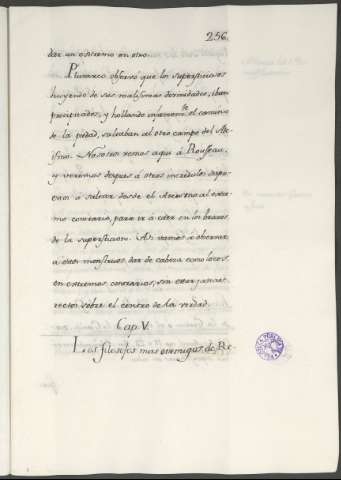 256.
dar un estremo en otro.
Plutarco observo que los supersticiosos
huyendo de sus malissimas divinidades, iban
precipitados, y hollando infamemte el camino
de la piedad, saltaban al otro campo del Ate
ismo. Nosotros vemos aqui á Rousseau,
y veremos despues á otros incredulos
a saltar desde el Ateismo al estre
mo contrario, para ir á caer en los brazos
de la supersticion. Asi vamos á observar
a estos monstruos dar de cabeza como locos,
en estremos contrarios, sin estar jamas
rectos sobre el centro de la verdad.
Cap. V.
Los filosofos mas enemigos de Re-